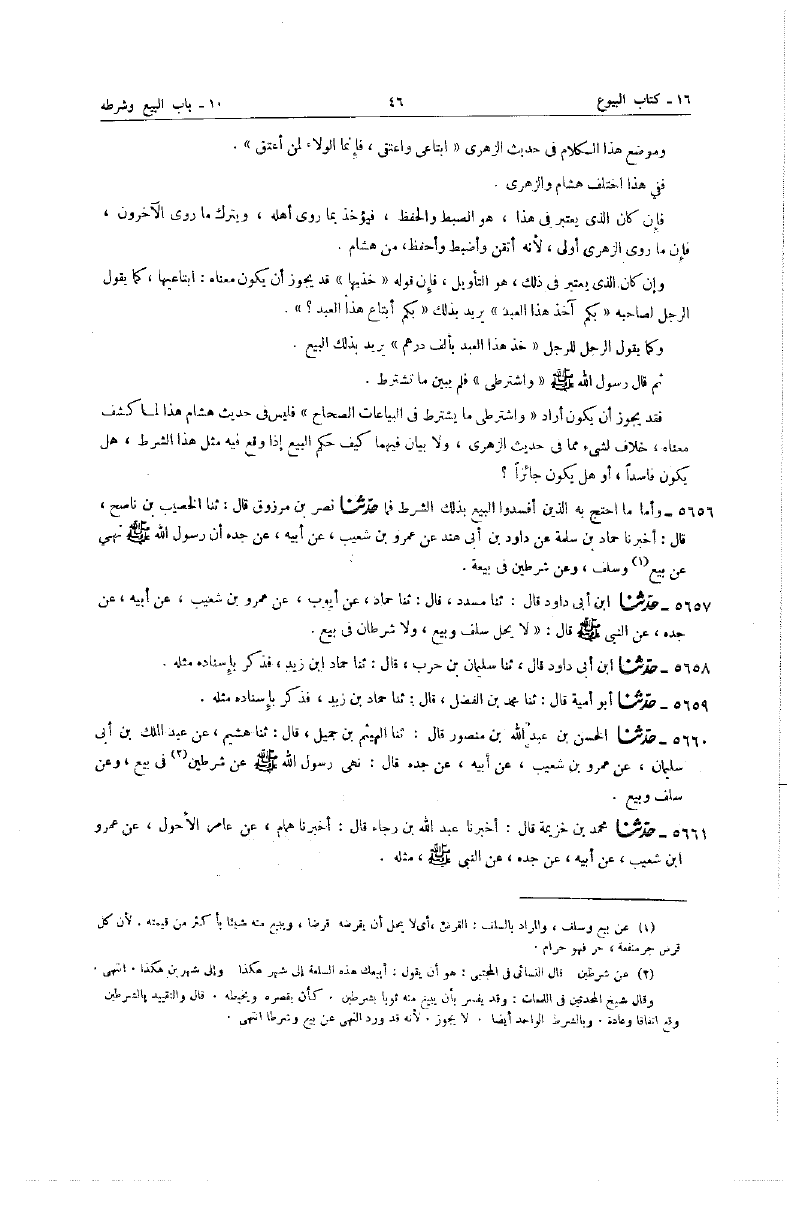 ١٦ - كتاب البيوع ٤٦ ١٠ - باب البيع وشرطه
وموضع هذا الكلام فى حديث الزهرى « ابتاعى واعتقى ، فإنما الولاء لمن أعتق » .
ففى هذا اختلف هشام والزهرى .
فإن كان الذى يعتبر فى هذا ، هو الضبط والحفظ ، فيؤخذ بما روى أهله ، ويترك ما روى الآخرون ،
فإن ما روى الزهرى أولى ، لأنه أتقن وأضبط وأحفظ، من هشام .
وإن كان الذى يعتبر فى ذلك ، هو التأويل ، فإن قوله « خذيها » قد يجوز أن يكون معناه : ابتاعيها ، كما يقول
الرجل لصاحبه « بكم آخذ هذا العبد » يريد بذلك « بكم أبتاع هذا العبد ؟ » .
وكما يقول الرجل للرجل « خذ هذا العبد بألف درهم » يريد بذلك البيع .
ثم قال رسول الله ﷺ « واشترطى » فلم يبين ما تشترط .
فقد يجوز أن يكون أراد « واشترطى ما يشترط فى البياعات الصحاح » فليس فى حديث هشام هذا لما كشف
معناه ، خلاف لشىء مما فى حديث الزهرى ، ولا بيان فيهما كيف حكم البيع إذا وقع فيه مثل هذا الشرط ، هل
يكون فاسداً ، أو هل يكون جائزاً ؟
٥٦٥٦ - وأما ما احتج به الذين أفسدوا البيع بذلك الشرط فما حدّثنا نصر بن مرزوق قال : ثنا الخصيب بن ناصح ،
قال : أخبرنا حماد بن سلمة عن داود بن أبى هند عن عمرو بن شعيب ، عن أبيه ، عن جده أن رسول الله ﷺ نهى
عن بيع(١) وسلف ، وعن شرطين فى بيعة .
٥٦٥٧ - حدّثنا ابن أبى داود قال : ثنا مسدد ، قال : ثنا حماد ، عن أيوب ، عن عمرو بن شعيب ، عن أبيه ، عن
جده ، عن النبى ﷺ قال : « لا يحل سلف وبيع ، ولا شرطان فى بيع .
٥٦٥٨ - حدّثنا ابن أبى داود قال ، ثنا سليمان بن حرب ، قال : ثنا حماد ابن زيد ، فذكر بإسناده مثله .
٥٦٥٩ - حدّثنا أبو أمية قال : ثنا محمد بن الفضل ، قال : ثنا حماد بن زيد ، فذكر بإسناده مثله .
٥٦٦٠ - حدّثنا الحسن بن عبد الله بن منصور قال : ثنا الهيثم بن جميل ، قال : ثنا هشيم ، عن عبد الملك بن أبى
سليمان ، عن عمرو بن شعيب ، عن أبيه ، عن جده قال : نهى رسول الله ﷺ عن شرطين(٢) فى بيع ، وعن
سلف وبيع .
٥٦٦١ - حدّثنا محمد بن خزيمة قال : أخبرنا عبد الله بن رجاء قال : أخبرنا همام ، عن عامر الأحول ، عن عمرو
ابن شعيب ، عن أبيه ، عن جده ، عن النبى ﷺ ، مثله .
(١) عن بيع وسلف ، والمراد بالسلف : القرض ، أى لا يحل أن يقرضه قرضا ، ويبيع منه شيئا بأكثر من قيمته . لأن كل
قرض جر منفعة ، حر فهو حرام .
(٢) عن شرطين قال النسائى فى المجتبى : هو أن يقول : أبيعك هذه السلعة إلى شهر بكذا وإلى شهرين بكذا . انتهى .
وقال شيخ المحدثين فى اللمعات : وقد يفسر بأن يبيع منه ثوبا بشرطين . كأن يقصره ويخيطه . قال والتقييد بالشرطين
وقع اتفاقا وعادة . وبالشرط الواحد أيضا . لا يجوز . لأنه قد ورد النهى عن بيع وشرطا انتهى .